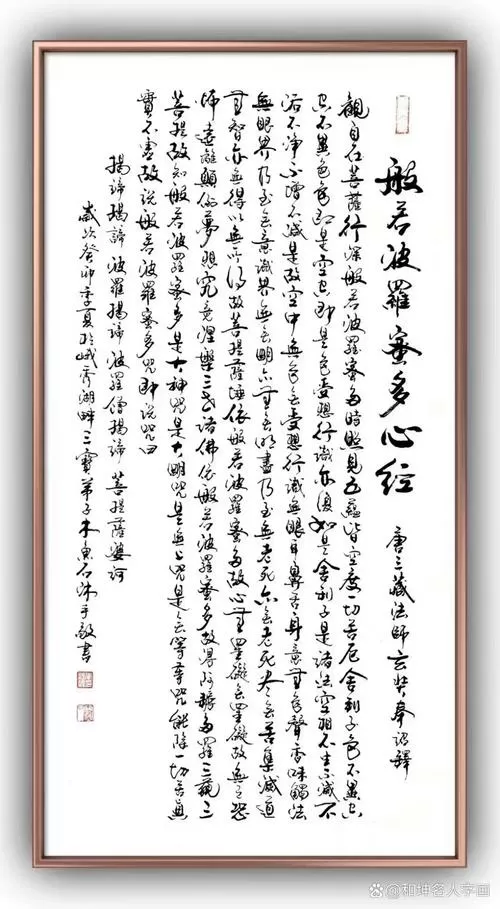 般若波羅蜜多心经
唐三藏法師玄奘奉詔譯
觀自在菩薩行深般若波羅蜜多時照見五蘊皆空度一切苦厄舍利子色不異空
空不異色色即是空空即是色受想行識亦復如是舍利子是諸法空相不生不滅不
垢不淨不增不減是故空中無色無受想行識無眼耳鼻舌身意無色聲香味觸法
無眼界乃至無意識界無無明亦無無明盡乃至無老死亦無老死盡無苦集滅道
無智亦無得以無所得故菩提薩埵依般若波羅蜜多故心無罣礙無罣礙故無有恐
怖遠離顛倒夢想究竟涅槃三世諸佛依般若波羅蜜多故得阿耨多羅三藐三
菩提故知般若波羅蜜多是大神咒是大明咒是無上咒是無等等咒能除一切苦真
實不虛故說般若波羅蜜多咒即說咒曰
揭諦揭諦 波羅揭諦 波羅僧揭諦 菩提薩婆訶
歲次癸卯季夏於峨秀湖畔三寶弟子木魚石沐手敬書
@和坤名人字画